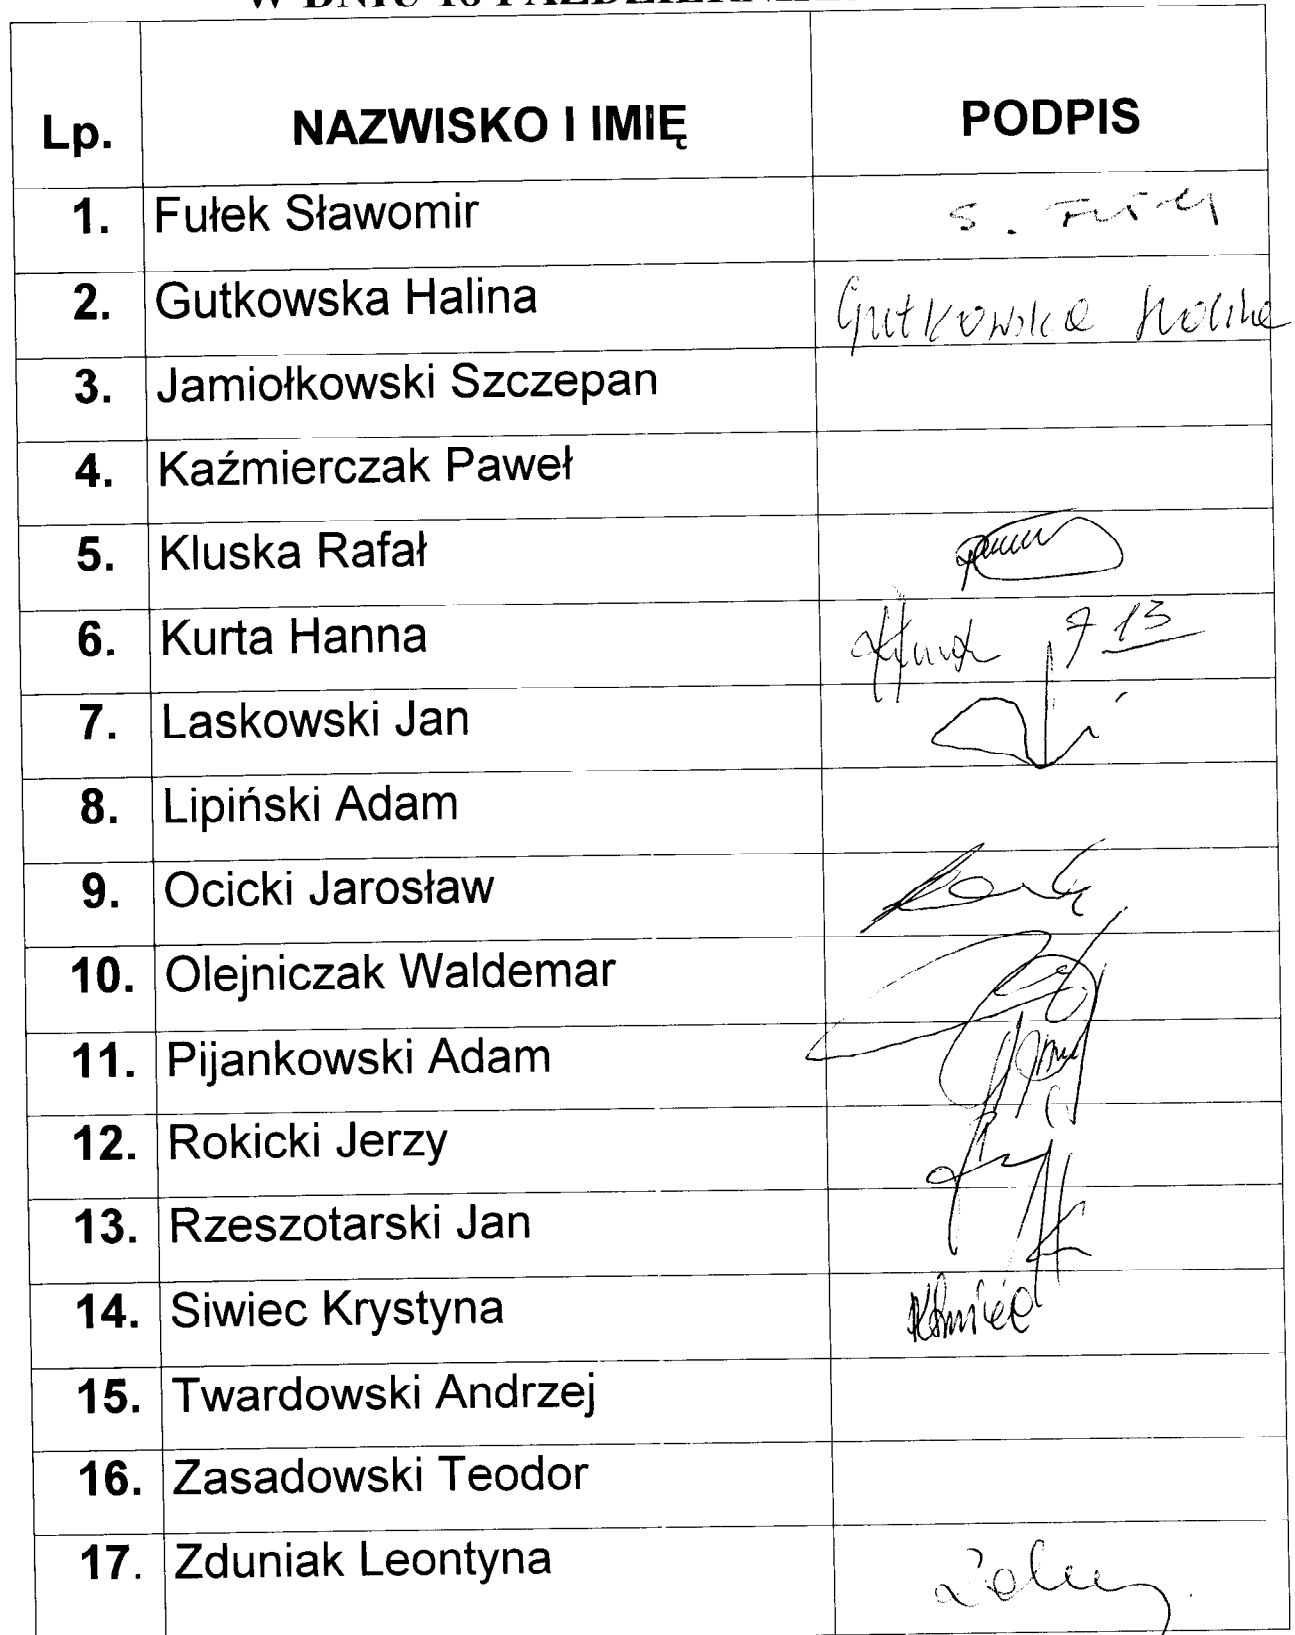 Lp. NAZWISKO I IMIĘ PODPIS
1. Fułek Sławomir S. Fułek
2. Gutkowska Halina Gutkowska Halina
3. Jamiołkowski Szczepan
4. Kaźmierczak Paweł
5. Kluska Rafał
6. Kurta Hanna 7 13
7. Laskowski Jan
8. Lipiński Adam
9. Ocicki Jarosław
10. Olejniczak Waldemar
11. Pijankowski Adam
12. Rokicki Jerzy
13. Rzeszotarski Jan
14. Siwiec Krystyna KSiwiec
15. Twardowski Andrzej
16. Zasadowski Teodor
17. Zduniak Leontyna